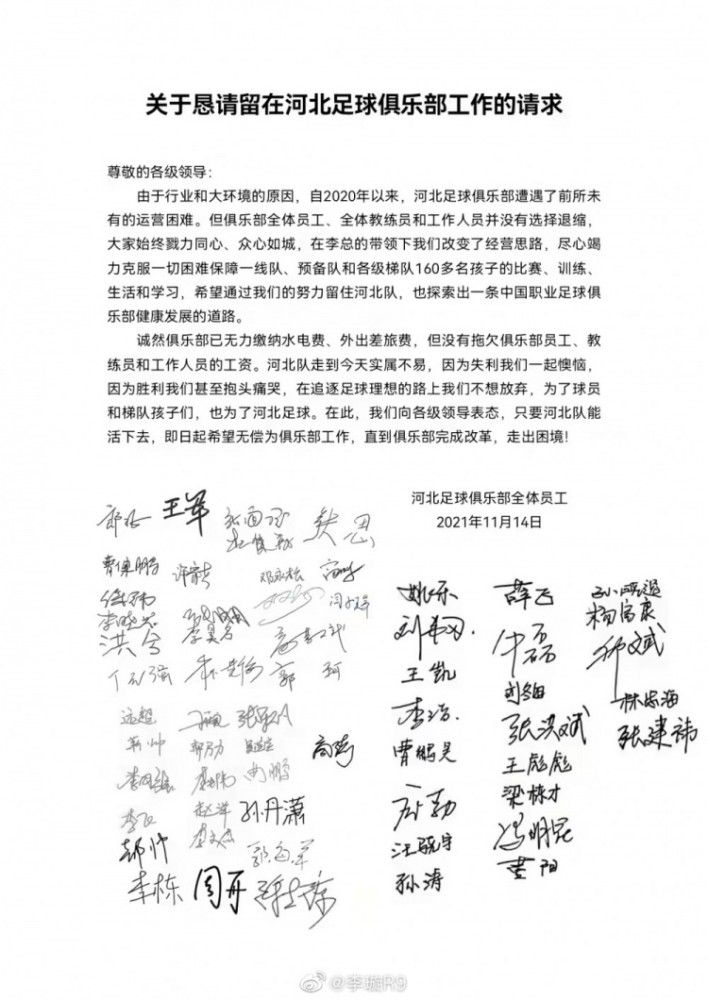 关于恳请留在河北足球俱乐部工作的请求
尊敬的各级领导：
由于行业和大环境的原因，自2020年以来，河北足球俱乐部遭遇了前所未
有的运营困难。但俱乐部全体员工、全体教练员和工作人员并没有选择退缩，
大家始终戮力同心、众心如城，在李总的带领下我们改变了经营思路，尽心竭
力克服一切困难保障一线队、预备队和各级梯队160多名孩子的比赛、训练、
生活和学习，希望通过我们的努力留住河北队，也探索出一条中国职业足球俱
乐部健康发展的道路。
诚然俱乐部已无力缴纳水电费、外出差旅费，但没有拖欠俱乐部员工、教
练员和工作人员的工资。河北队走到今天实属不易，因为失利我们一起懊恼，
因为胜利我们甚至抱头痛哭，在追逐足球理想的路上我们不想放弃，为了球员
和梯队孩子们，也为了河北足球。在此，我们向各级领导表态，只要河北队能
活下去，即日起希望无偿为俱乐部工作，直到俱乐部完成改革，走出困境！
河北足球俱乐部全体员工
2021年11月14日
王军
曹保鹏
洪兮
郭珂
远超
孙丹潇
李栋 周开
姚乐 薛飞
杨富康
王凯
李浩
曹鹏昊
张洪斌
林忠海
张建祎
王彪彪
梁栋才
冯明昆
孙涛
黄阳
@李璇R9